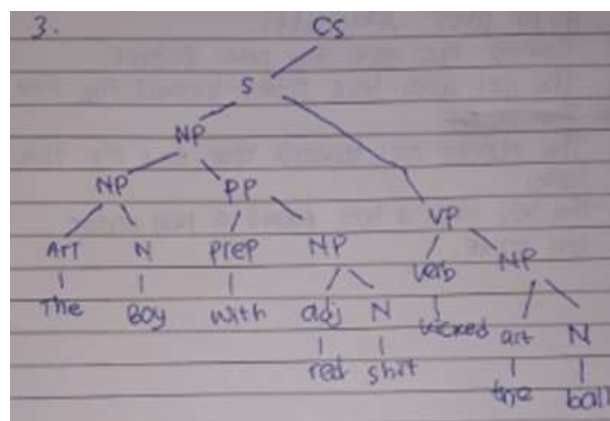 3. CS
S
NP
NP PP VP
Art N prep NP verb NP
The Boy with adj N kicked art N
red shirt the ball